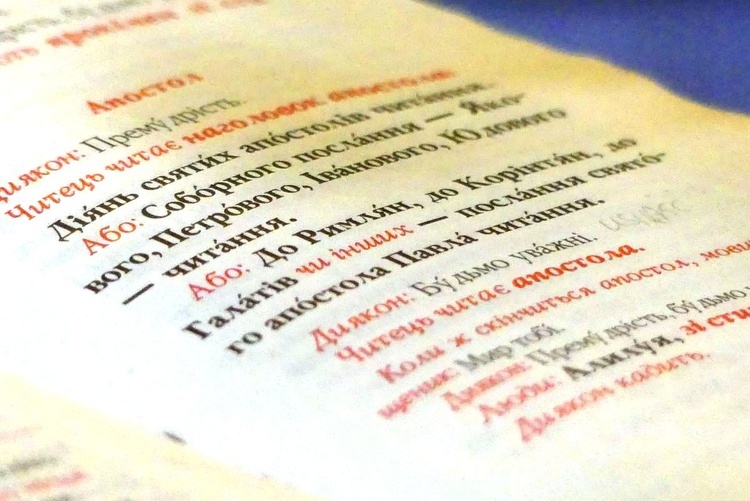 Апостол
Диякон: Прему́дрість.
Читець читає наголовок апостола:
Дія́нь святи́х апо́столів чита́ння.
Або: Собо́рного посла́ння — Яко-
вого, Петро́вого, Іва́нового, Ю́дового
— чита́ння.
Або: До Ри́млян, до Корінтя́н, до
Гала́тів чи інших — посла́ння свято́-
го апо́стола Павла́ чита́ння.
Диякон: Бу́дьмо ува́жні.
Читець читає апостола.
Коли ж скінчиться апостол, мовить
щеник: Мир тобі.
Диякон: Прему́дрість, бу́дьмо
Люди: Алилу́я, зі
Диякон кадить.